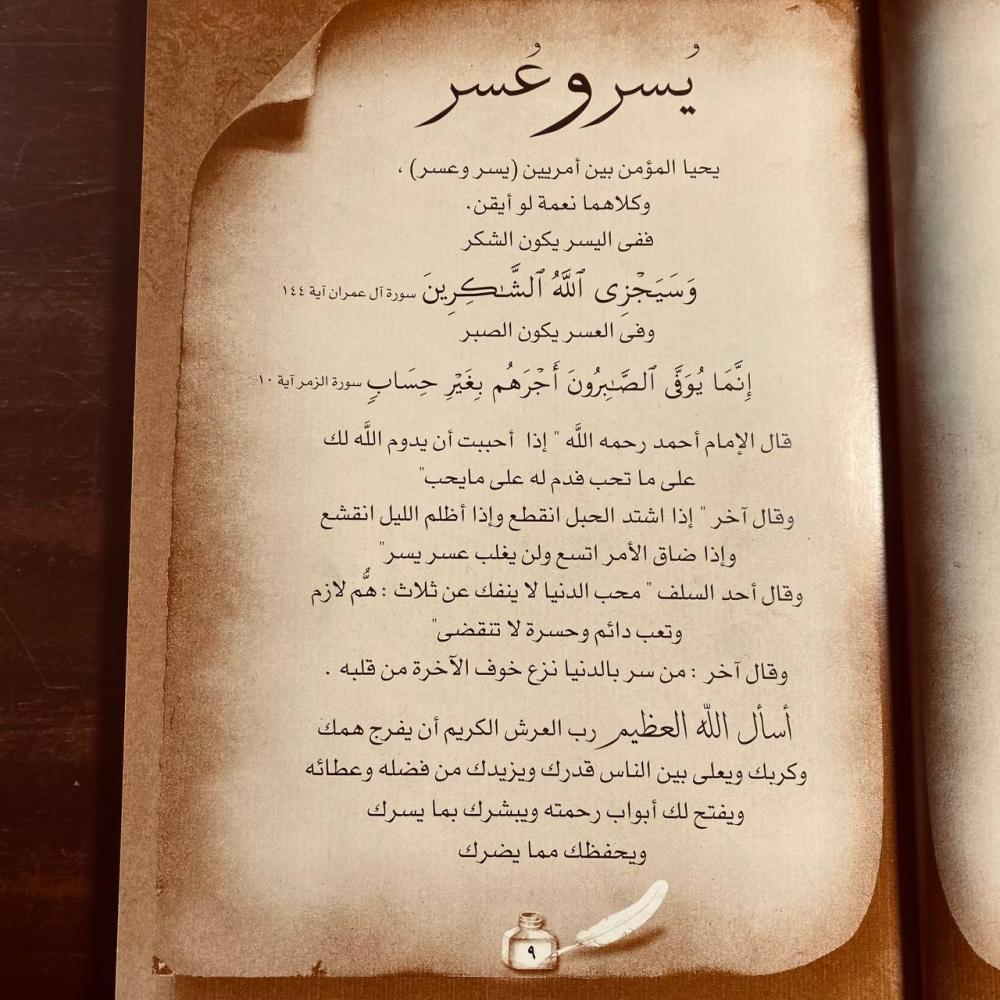 يُسر وعُسر
يحيا المؤمن بين أمريين (يسر وعسر) ،
وكلاهما نعمة لو أيقن.
ففى اليسر يكون الشكر
وَسَيَجْزِى ٱللَّهُ ٱلشَّـٰكِرِينَ سورة آل عمران آية ١٤٤
وفى العسر يكون الصبر
إِنَّمَا يُوَفَّى ٱلصَّـٰبِرُونَ أَجْرَهُم بِغَيْرِ حِسَابٍ سورة الزمر آية ١٠
قال الإمام أحمد رحمه اللَّه " إذا أحببت أن يدوم اللَّه لك
على ما تحب فدم له على مايحب"
وقال آخر " إذا اشتد الحبل انقطع وإذا أظلم الليل انقشع
وإذا ضاق الأمر اتسع ولن يغلب عسر يسر"
وقال أحد السلف " محب الدنيا لا ينفك عن ثلاث : هُّم لازم
وتعب دائم وحسرة لا تنقضى"
وقال آخر : من سر بالدنيا نزع خوف الآخرة من قلبه .
أسأل اللّه العظيم رب العرش الكريم أن يفرج همك
وكربك ويعلى بين الناس قدرك ويزيدك من فضله وعطائه
ويفتح لك أبواب رحمته ويبشرك بما يسرك
ويحفظك مما يضرك
٩